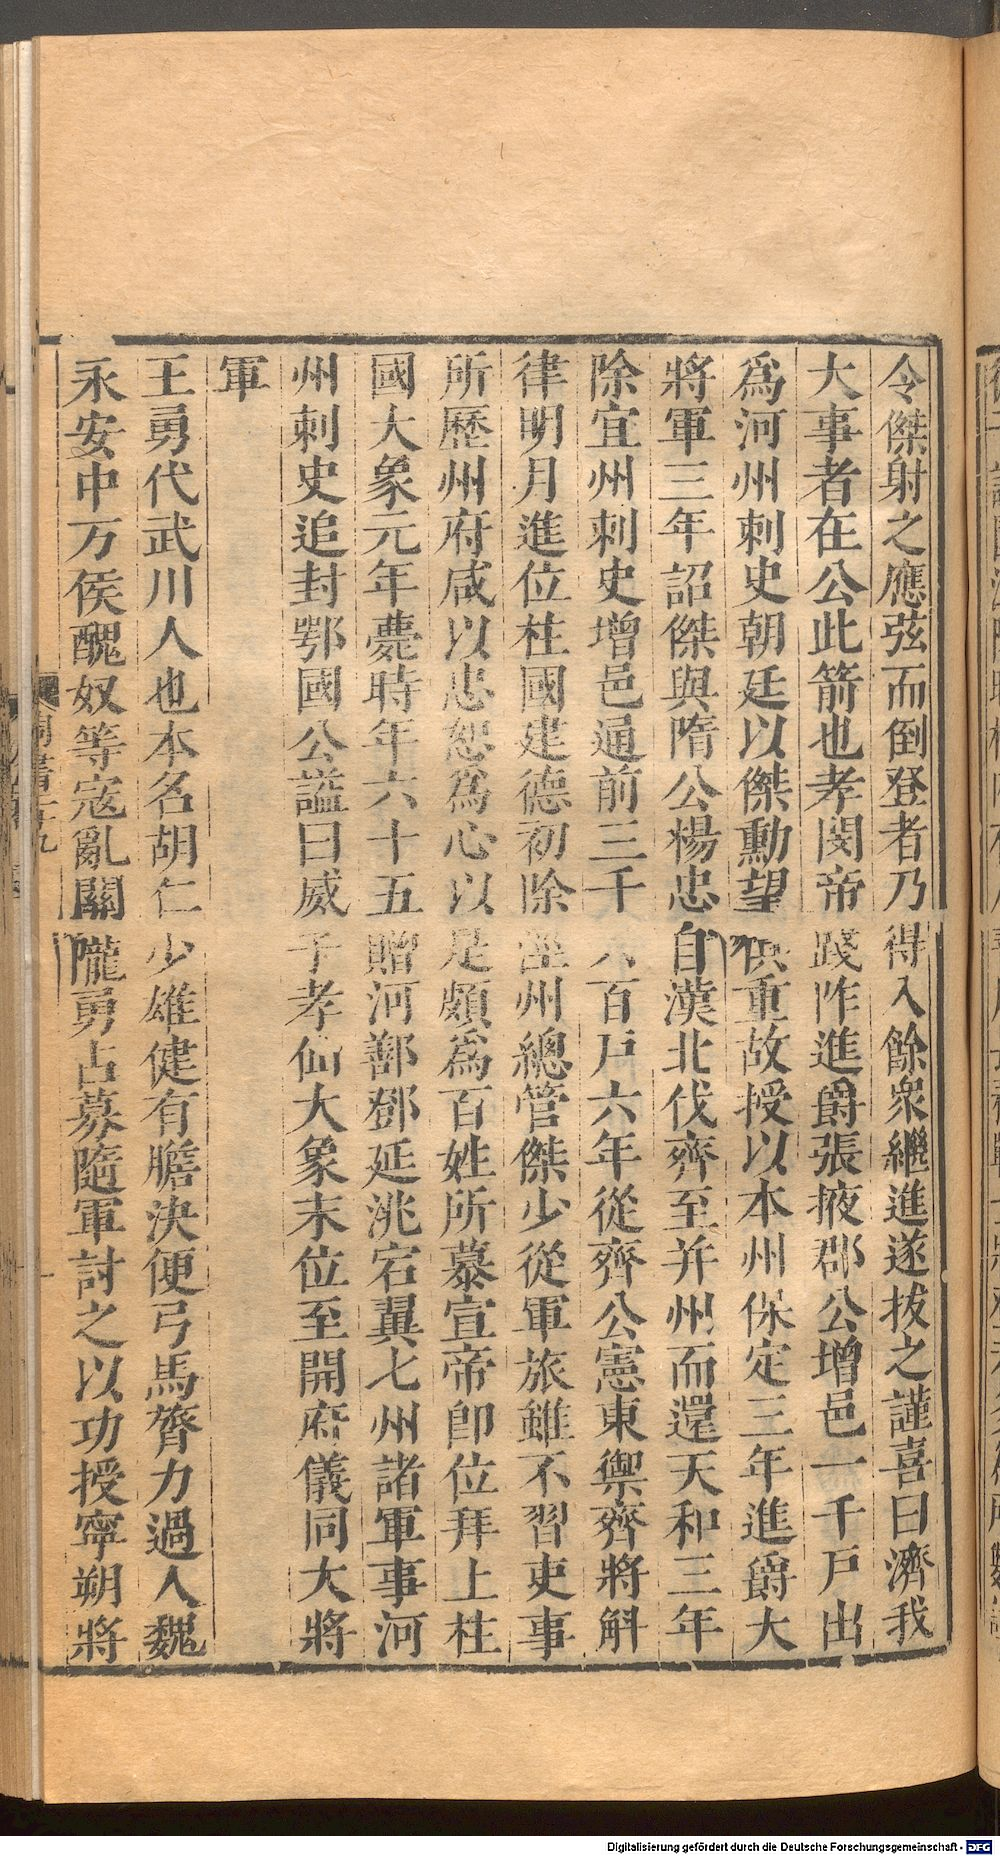 令傑射之應弦而倒登者乃得入餘衆繼進遂拔之謹喜曰濟我
大事者在公此箭也孝閔帝踐阼進爵張掖郡公增邑一千戶出
爲河州刺史朝廷以傑勳望俱重故授以本州保定三年進爵大
將軍三年詔傑與隋公楊忠自漠北伐齊至并州而還天和三年
除宜州刺史增邑通前三千六百戶六年從齊公憲東禦齊將斛
律明月進位柱國建德初除涇州總管傑少從軍旅雖不習吏事
所歷州府咸以忠恕爲心以是頗爲百姓所慕宣帝卽位拜上柱
國大象元年薨時年六十五贈河鄯鄧延洮宕翼七州諸軍事河
州刺史追封鄂國公謚曰威子孝仙大象末位至開府儀同大將
軍
王勇代武川人也本名胡仁少雄健有膽決便弓馬膂力過人魏
永安中万俟醜奴等寇亂關隴勇占募隨軍討之以功授寧朔將
周書二十九
Digitalisierung gefördert durch die Deutsche Forschungsgemeinschaft - DFG